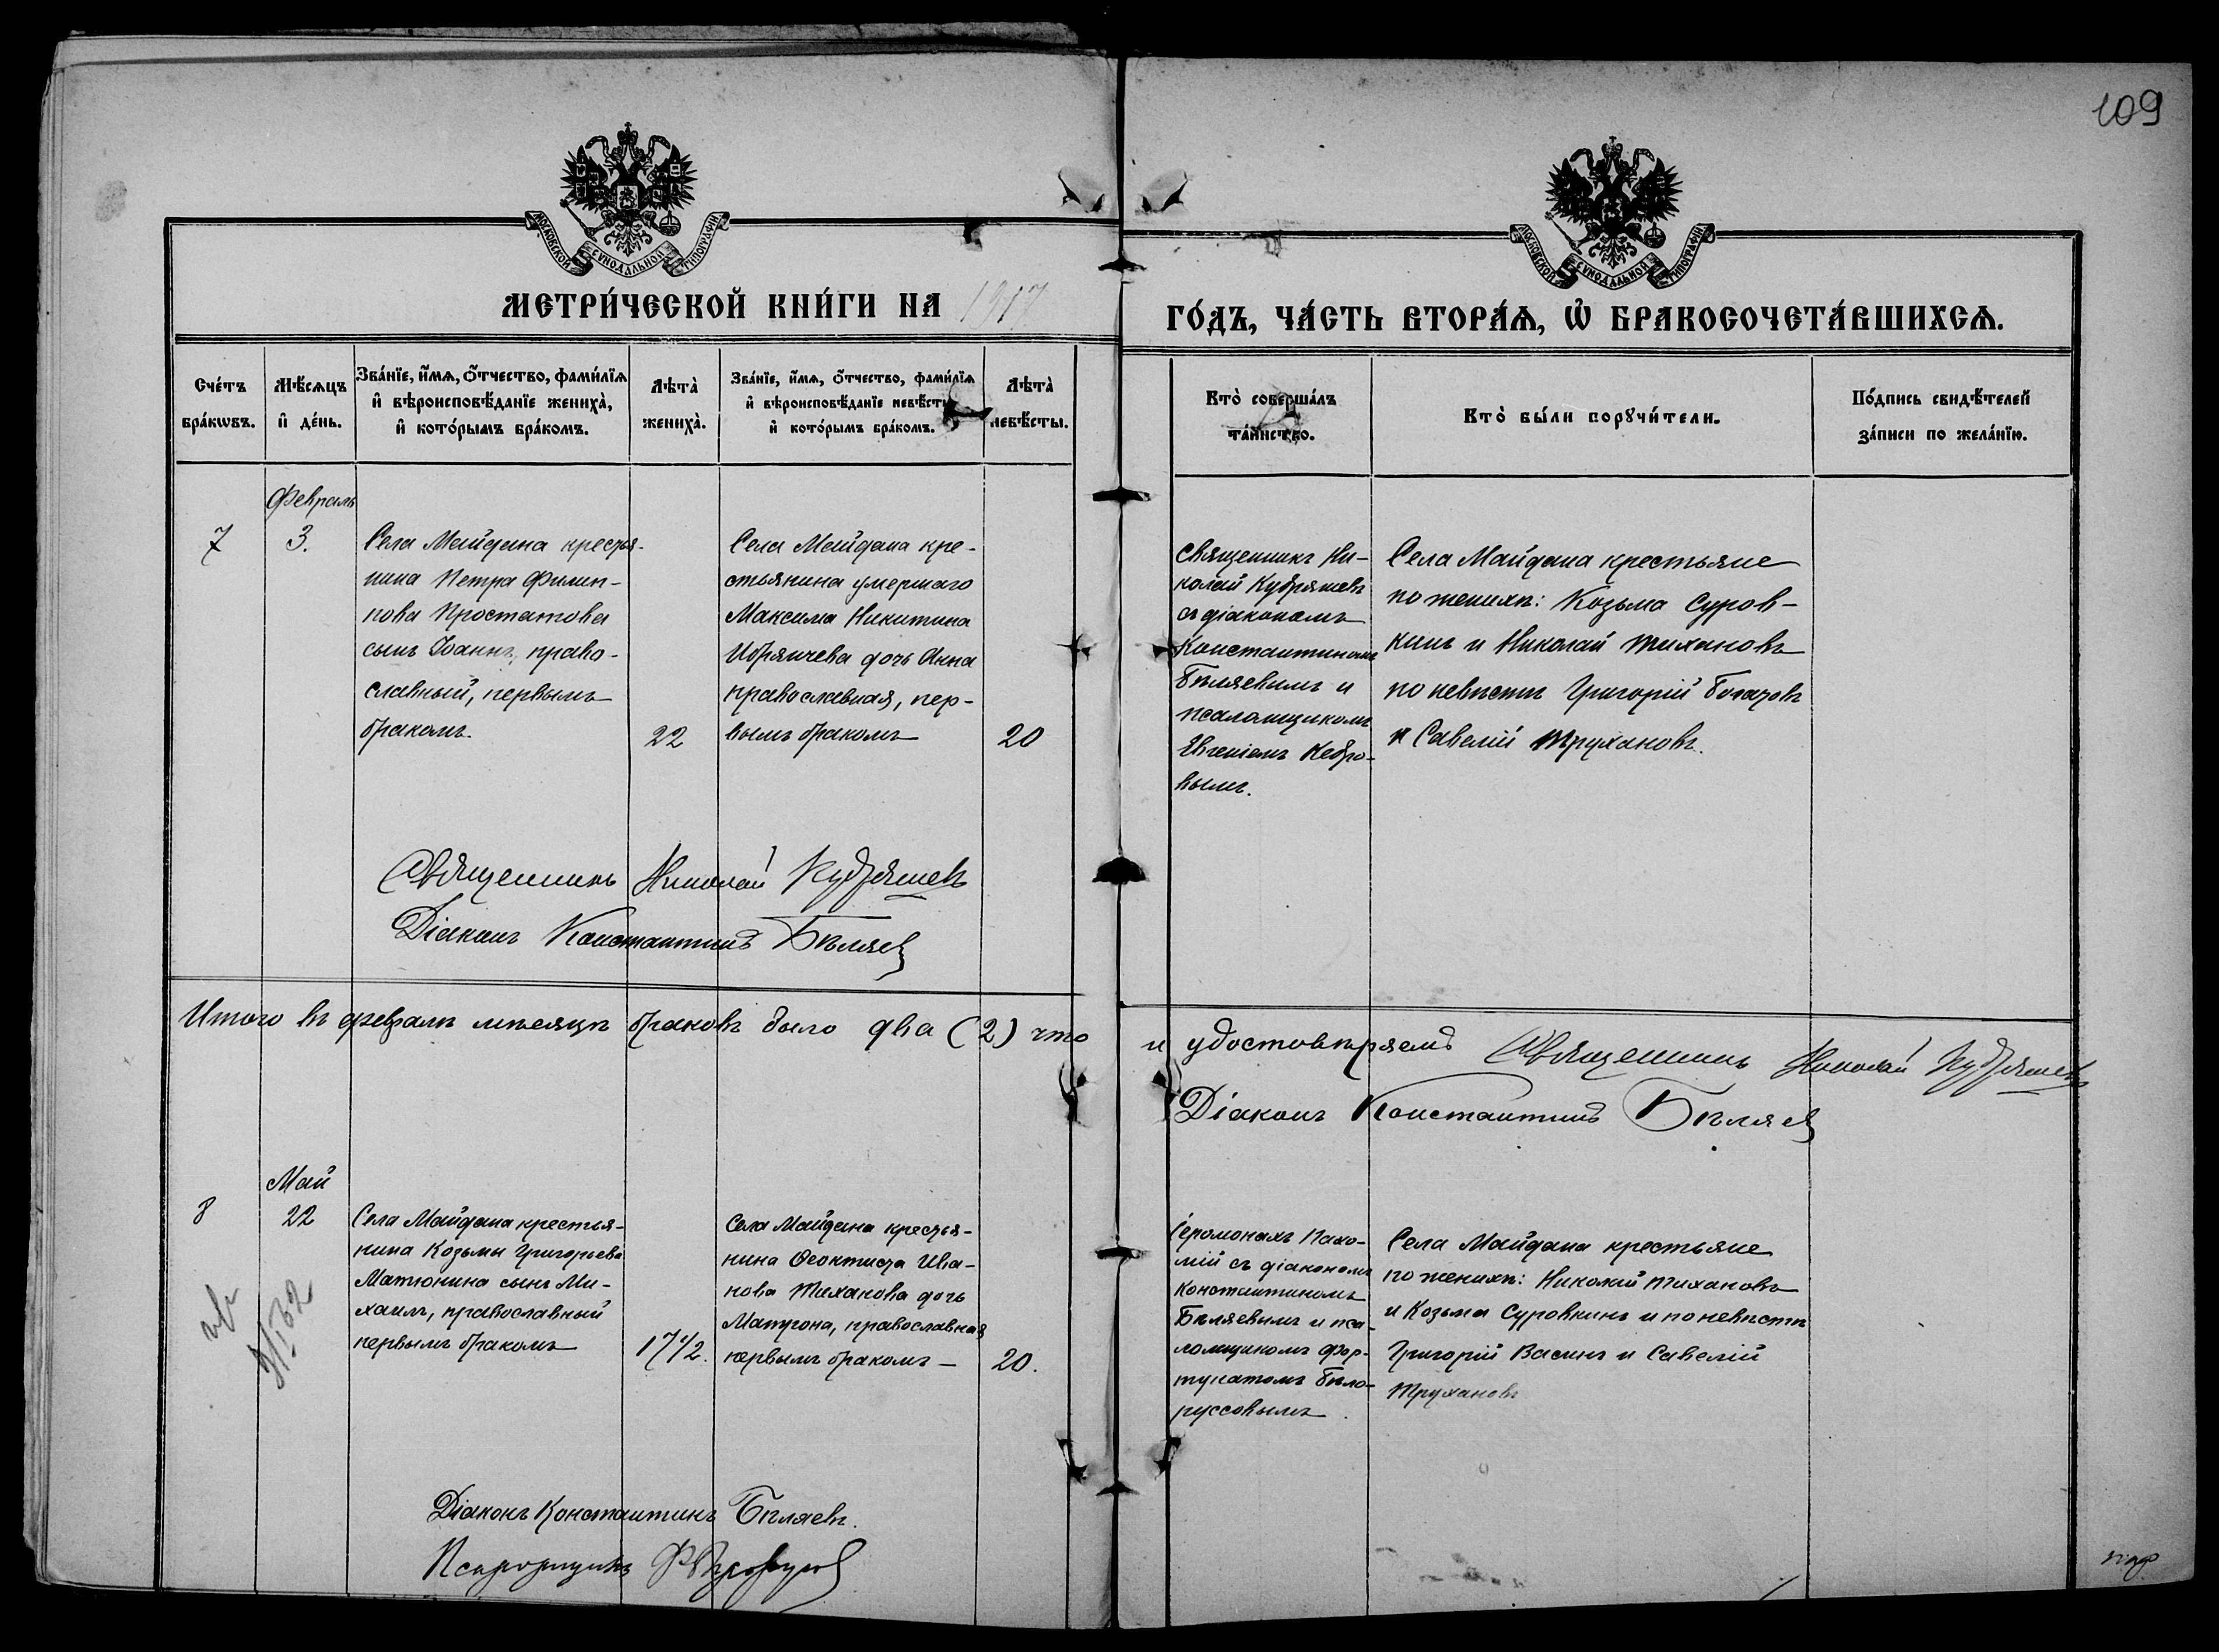 109
МОСКОВСКОЙ СѴНОДАЛЬНОЙ ТИПОГРАФІИ
МОСКОВСКОЙ СѴНОДАЛЬНОЙ ТИПОГРАФІИ
МЕТРИ́ЧЕСКОЙ КНИ́ГИ НА 1917
ГО́ДЪ, ЧА́СТЬ ВТОРА́Ѧ, Ѡ҆ БРАКОСОЧЕТА́ВШИХСѦ.
Сче́тъ
бра́кѡвъ.
Мѣ́сѧцъ
и҆ де́нь.
Зва́нїе, и҆́мѧ, ѻ҆́тчество, фами́лїѧ
и҆ вѣроисповѣ́данїе жениха̀,
и҆ кото́рымъ бра́комъ.
Лѣта̀
жениха̀.
Зва́нїе, и҆́мѧ, ѻ҆́тчество, фами́лїѧ
и҆ вѣроисповѣ́данїе невѣ́сты
и҆ кото́рымъ бра́комъ.
Лѣта̀
невѣ́сты.
Кто̀ соверша́лъ
та́инство.
Кто̀ бы́ли порꙋчи́тели.
По́дпись свидѣ́телей
за́писи по жела́нїю.
Февраль
7
3.
Села Майдана крестья-
нина Петра Филип-
пова Простатова
сынъ Іоаннъ, право-
славный, первымъ
бракомъ.
22
Села Майдана кре-
стьянина умершаго
Максима Никитина
дочь Анна
православная, пер-
вымъ бракомъ
20
Священникъ Ни-
колай Кудряшевъ
съ діакономъ
Константиномъ
Бѣляевымъ и
псаломщикомъ
Евгеніемъ Кедро-
вымъ.
Села Майдана крестьяне
по женихѣ: Козьма Суров-
кинъ и Николай Тихановъ
по невѣстѣ Григорій
и Савелій Трухановъ.
Священникъ Николай Кудряшевъ
Діаконъ Константинъ Бѣляевъ
Итого въ февралѣ мѣсяцѣ браковъ было два (2) что
и удостовѣряемъ Священникъ Николай Кудряшевъ
Діаконъ Константинъ Бѣляевъ
Май
8
22
Села Майдана крестья-
нина Козьмы Григорьева
Матюнина сынъ Ми-
хаилъ, православный
первымъ бракомъ
17 1/2.
Села Майдана крестья-
нина Ѳеоктиста Ива-
нова Тиханова дочь
Матрона, православная
первымъ бракомъ —
20.
Іеромонахъ Пахо-
мій съ діакономъ
Константиномъ
Бѣляевымъ и пса-
ломщикомъ Фор-
тунатомъ Бѣло-
руссовымъ.
Села Майдана крестьяне
по женихѣ: Николай Тихановъ
и Козьма Суровкинъ и по невѣстѣ
Григорій Васинъ и Савелій
Трухановъ
Діаконъ Константинъ Бѣляевъ.
Псаломщикъ